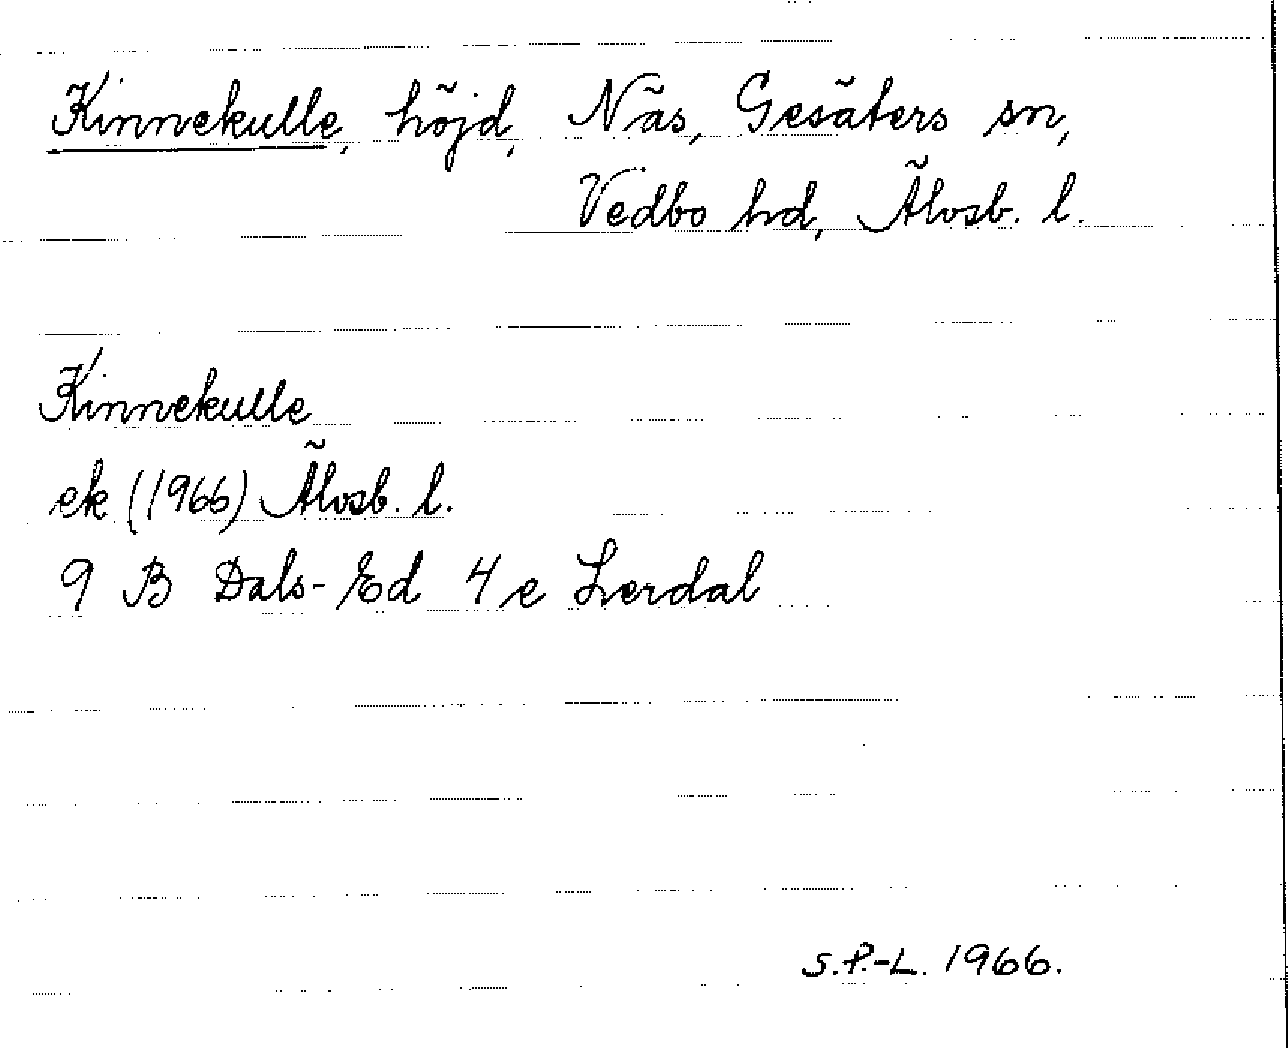 Kinnekulle, höjd, Näs, Gesäters sn,
Vedbo hd, Älvsb. l.
Kinnekulle
ek (1966) Älvsb. l.
9 B Dals-Ed 4 e Lerdal
S.P.-L. 1966.